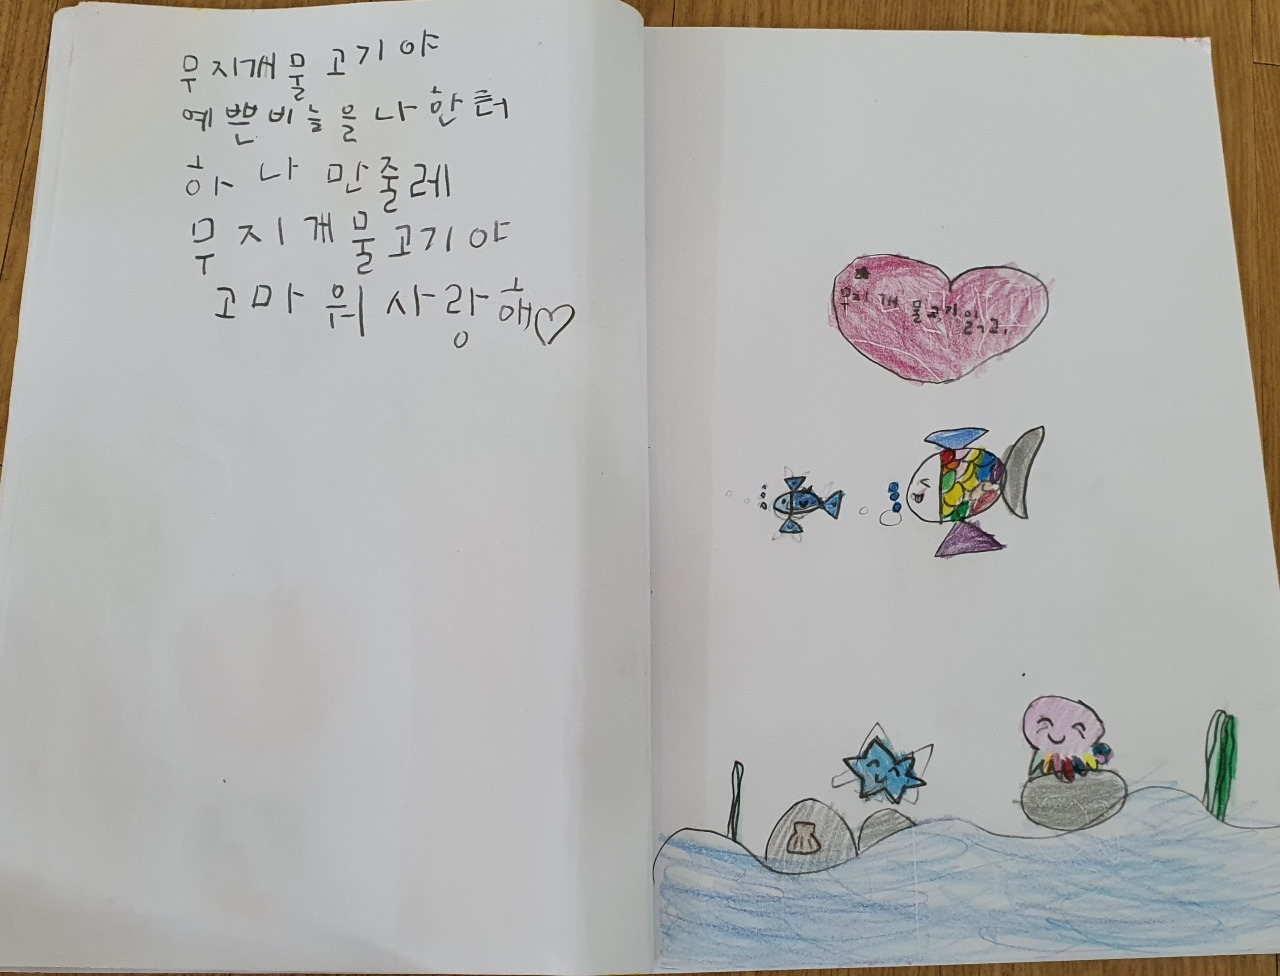 무지개물고기야
예쁜비늘을나한터
하나만줄레
무지개물고기야
고마워사랑해♡
무지개물고기읽고.